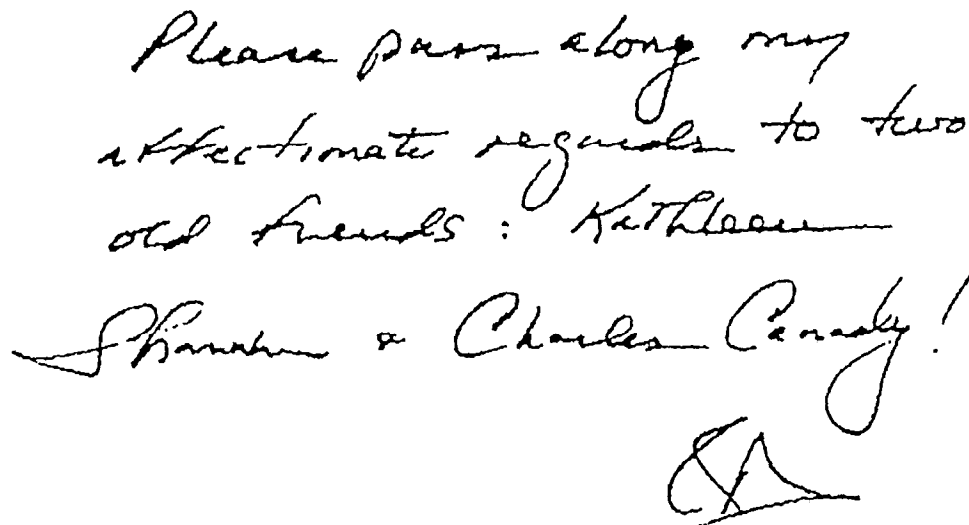 Please pass along my
affectionate regards to two
old friends: Kathleen
Shanahan & Charles Canady!